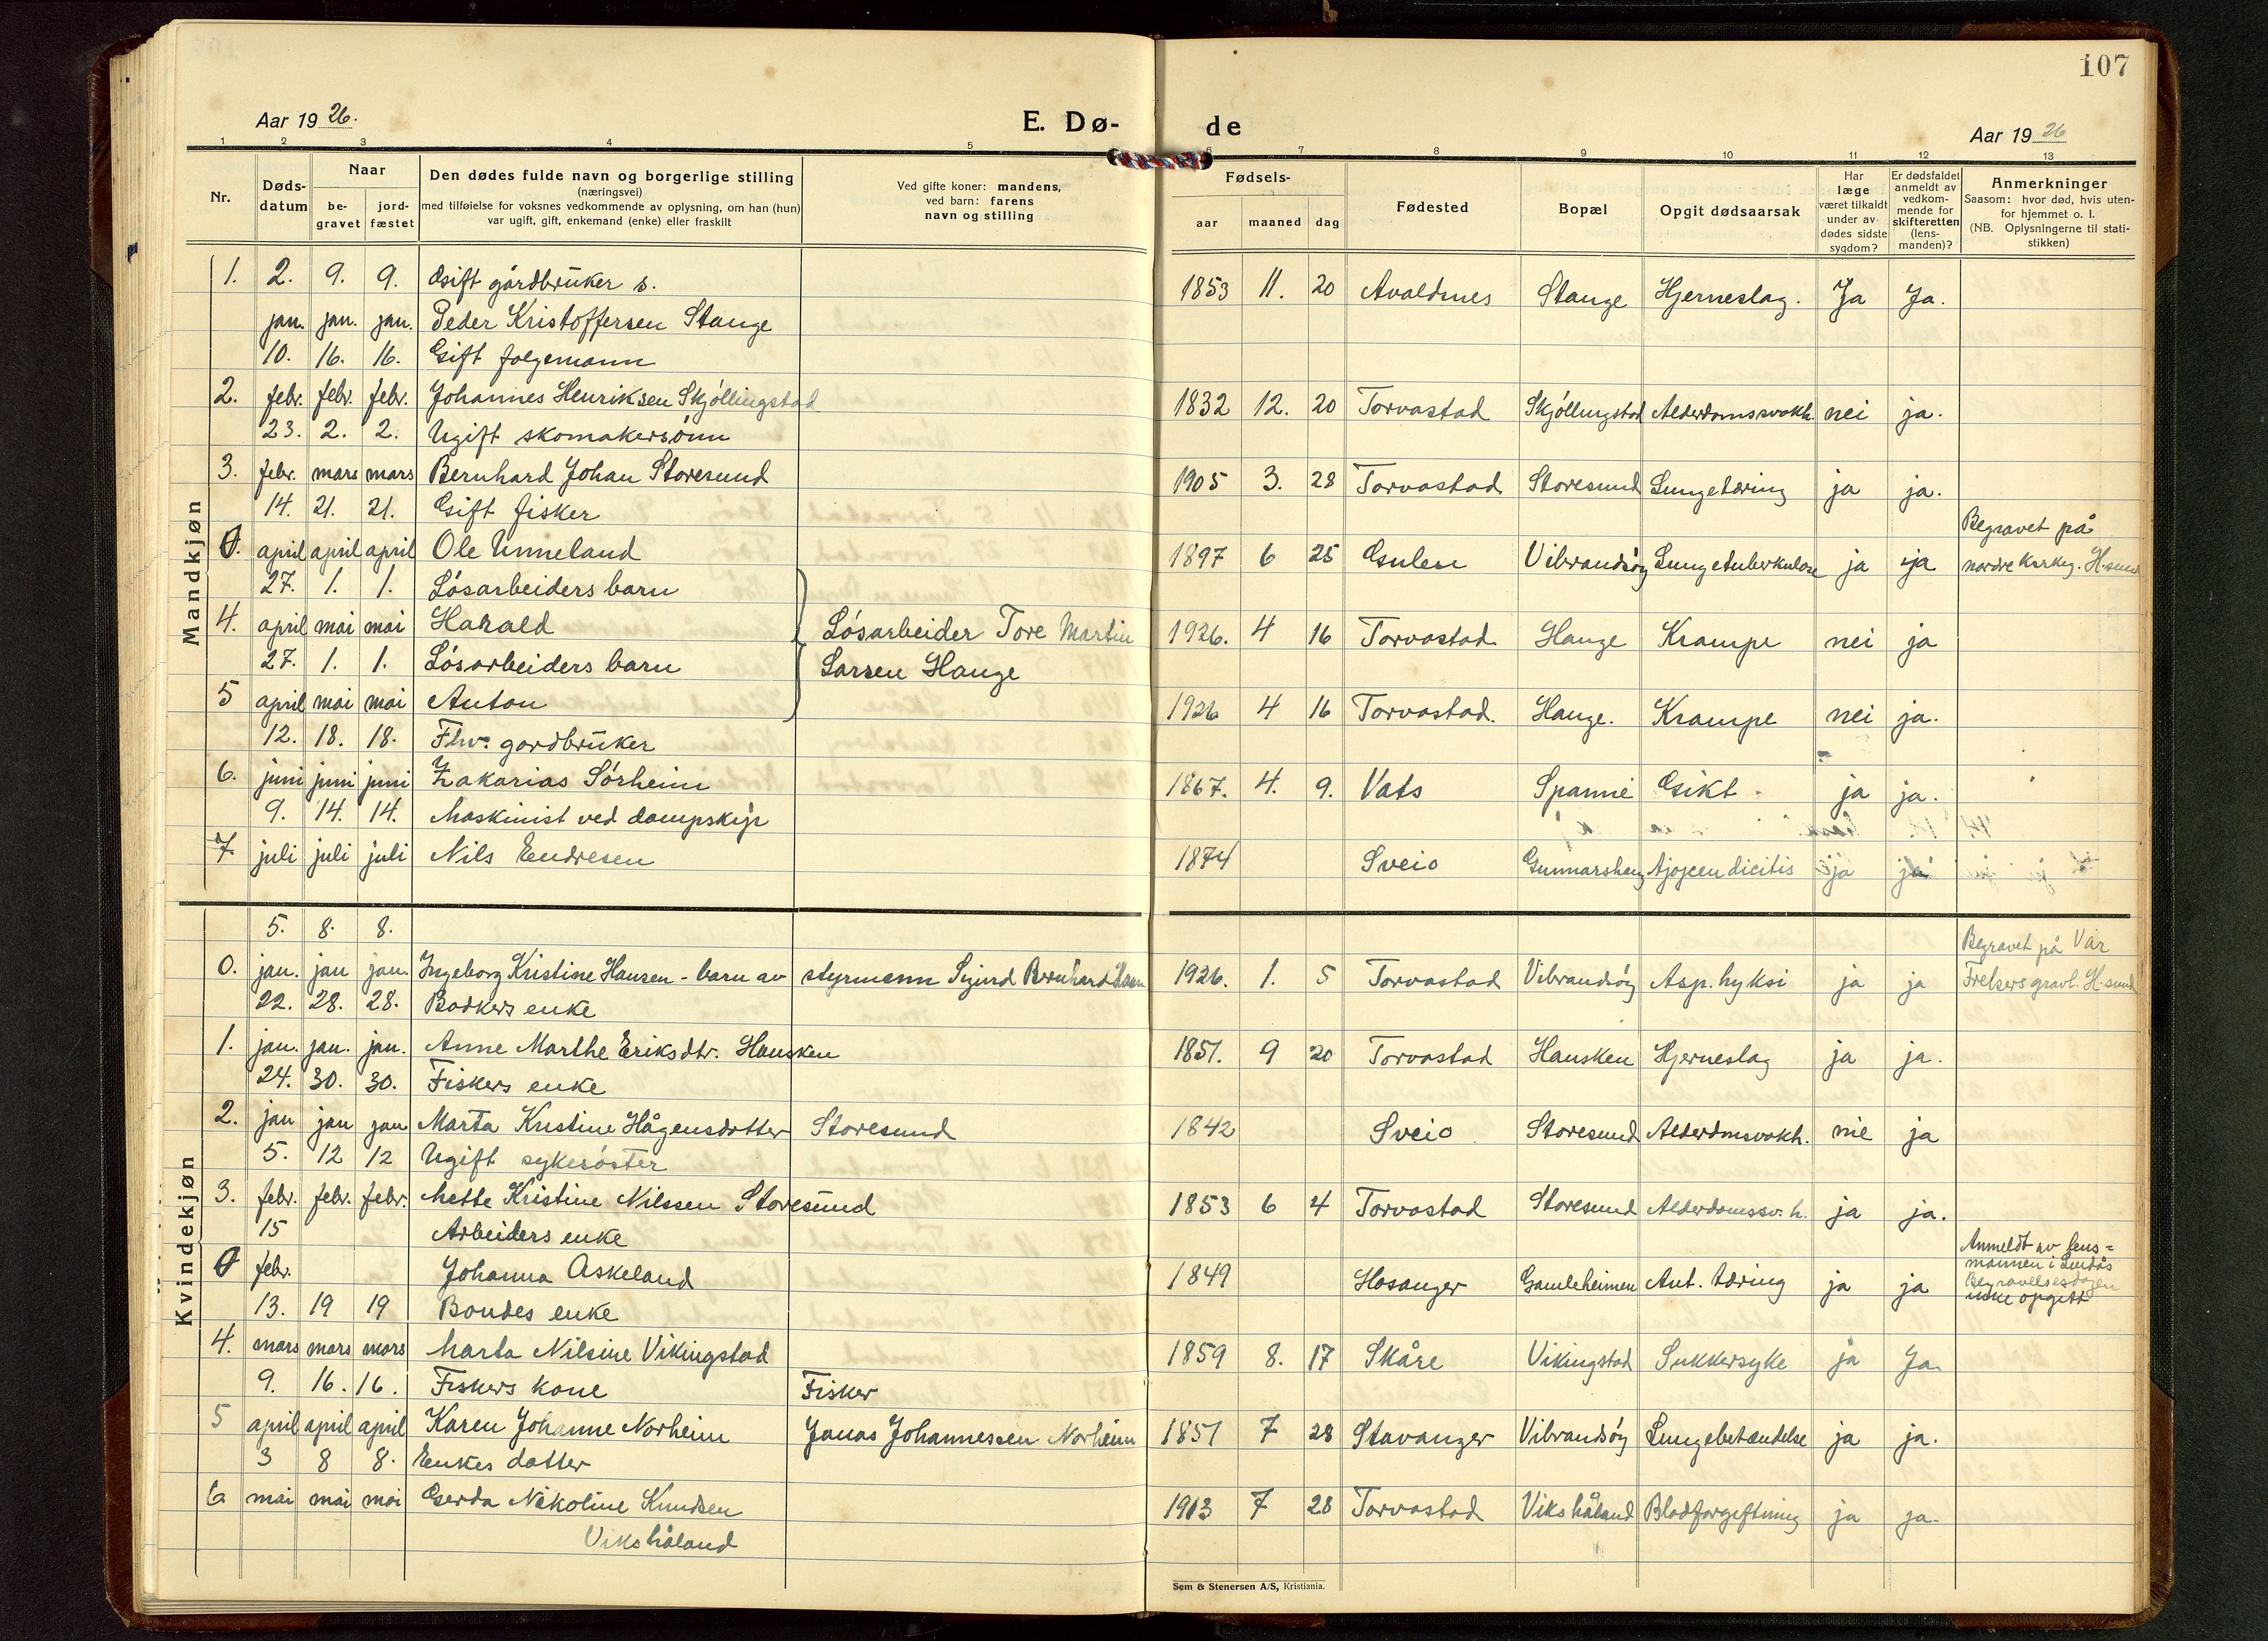 107
Aar 1926.
E. Dø-
de
Aar 1926
1 2 3 4 5 6 7 8 9 10 11 12 13
Nr.
Døds-
datum
Naar
be-
gravet
jord-
fæstet
Den dødes fulde navn og borgerlige stilling
(næringsvei)
med tilføielse for voksnes vedkommende av oplysning, om han (hun)
var ugift, gift, enkemand (enke) eller fraskilt
Ved gifte koner: mandens,
ved barn: farens
navn og stilling
Fødsels-
aar maaned dag
Fødested
Bopæl
Opgit dødsaarsak
Har
læge
været tilkaldt
under av-
dødes sidste
sygdom?
Er dødsfaldet
anmeldt av
vedkom-
mende for
skifteretten
(lens-
manden)?
Anmerkninger
Saasom: hvor død, hvis uten-
for hjemmet o. l.
(NB. Oplysningerne til stati-
stikken)
Mandkjøn
1. 2. 9. 9. Gift gårdbruker s.
1853 11. 20 Avaldsnes Stange Hjerneslag. Ja Ja.
jan. jan. jan. Peder Kristoffersen Stange
10. 16. 16. Gift folgemann
2. febr. febr. febr. Johannes Henriksen Skjøllingstad
1832 12. 20 Torvastad Skjøllingstad Alderdomssvakh. nei ja.
23. 2. 2. Ugift skomakersønn
3. febr. mars mars Bernhard Johan Storesund
1905 3. 28 Torvastad Storesund Lungetæring ja ja.
14. 21. 21. Gift fisker
0. april april april Ole Unneland
1897 6 25 Gulen Vibrandsøy Lungetuberkulose ja ja
Begravet på
nordre kirkeg. H.sund
27. 1. 1. Løsarbeiders barn
4. april mai mai Harald
Løsarbeider Tore Martin
1926. 4 16 Torvastad Hauge Krampe nei ja
27. 1. 1. Løsarbeiders barn
Larsen Hauge
5 april mai mai Anton
1926 4 16 Torvastad. Hauge. Krampe nei ja.
12. 18. 18. Fhv. gardbruker
6. juni juni juni Zakarias Sørheim
1867. 4. 9. Vats Spanne Gikt ja ja.
9. 14. 14. Maskinist ved dampskip
7 juli juli juli Nils Endresen
1874 Sveio Gunnarshaug Appendicitis ja ja
Kvindekjøn
5. 8. 8.
0. jan. jan jan. Ingeborg Kristine Hansen - barn av styrmann Sigurd Bernhard Hansen
1926. 1. 5 Torvastad Vibrandsøy Asp. hyksi ja ja
Begravet på Vår
Frelsers gravl. H.sund
22. 28. 28. Bødkers enke
1. jan. jan. jan. Anne Marthe Eriksdtr. Hausken
1851. 9 20 Torvastad Hausken Hjerneslag ja ja.
24. 30. 30. Fiskers enke
2. jan jan jan Marta Kristine Hågensdotter Storesund
1842 Sveio Storesund Alderdmsvakh. nie ja
5. 12 12 Ugift sykesøster
3. febr. febr. febr. Mette Kristine Nilssen Storesund
1853 6 4 Torvastad Storesund Alderdomssv.h. ja ja.
15 Arbeiders enke
0 febr. Johanna Askeland
1849 Hosanger Gamleheimen Ant. tæring ja ja
Anmeldt av lens=
mannen i Lindås
Begravelsesdagen
ikke opgitt
13. 19 19 Bondes enke
4. mars mars mars Marta Nilsine Vikingstad
1859 8. 17 Skåre Vikingstad Sukkersyke ja Ja.
9. 16. 16. Fiskers kone
Fisker
5 april april april Karen Johanne Norheim
Jonas Johannessen Norheim
1851 7 28 Stavanger Vibrandsøy Lungebetændelse ja ja.
3 8 8. Enkes datter
6 mai mai mai Gerda Nikoline Knudsen
1913 7 28 Torvastad Vikshåland Blodforgiftning ja ja.
Vikshåland
Sem & Stenersen A/S, Kristiania.